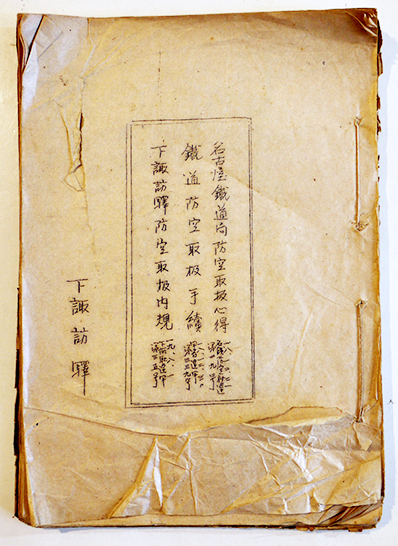 名古屋鐵道局防空取扱心得
鐵道防空取扱手續
下諏訪驛防空取扱内規
下諏訪驛